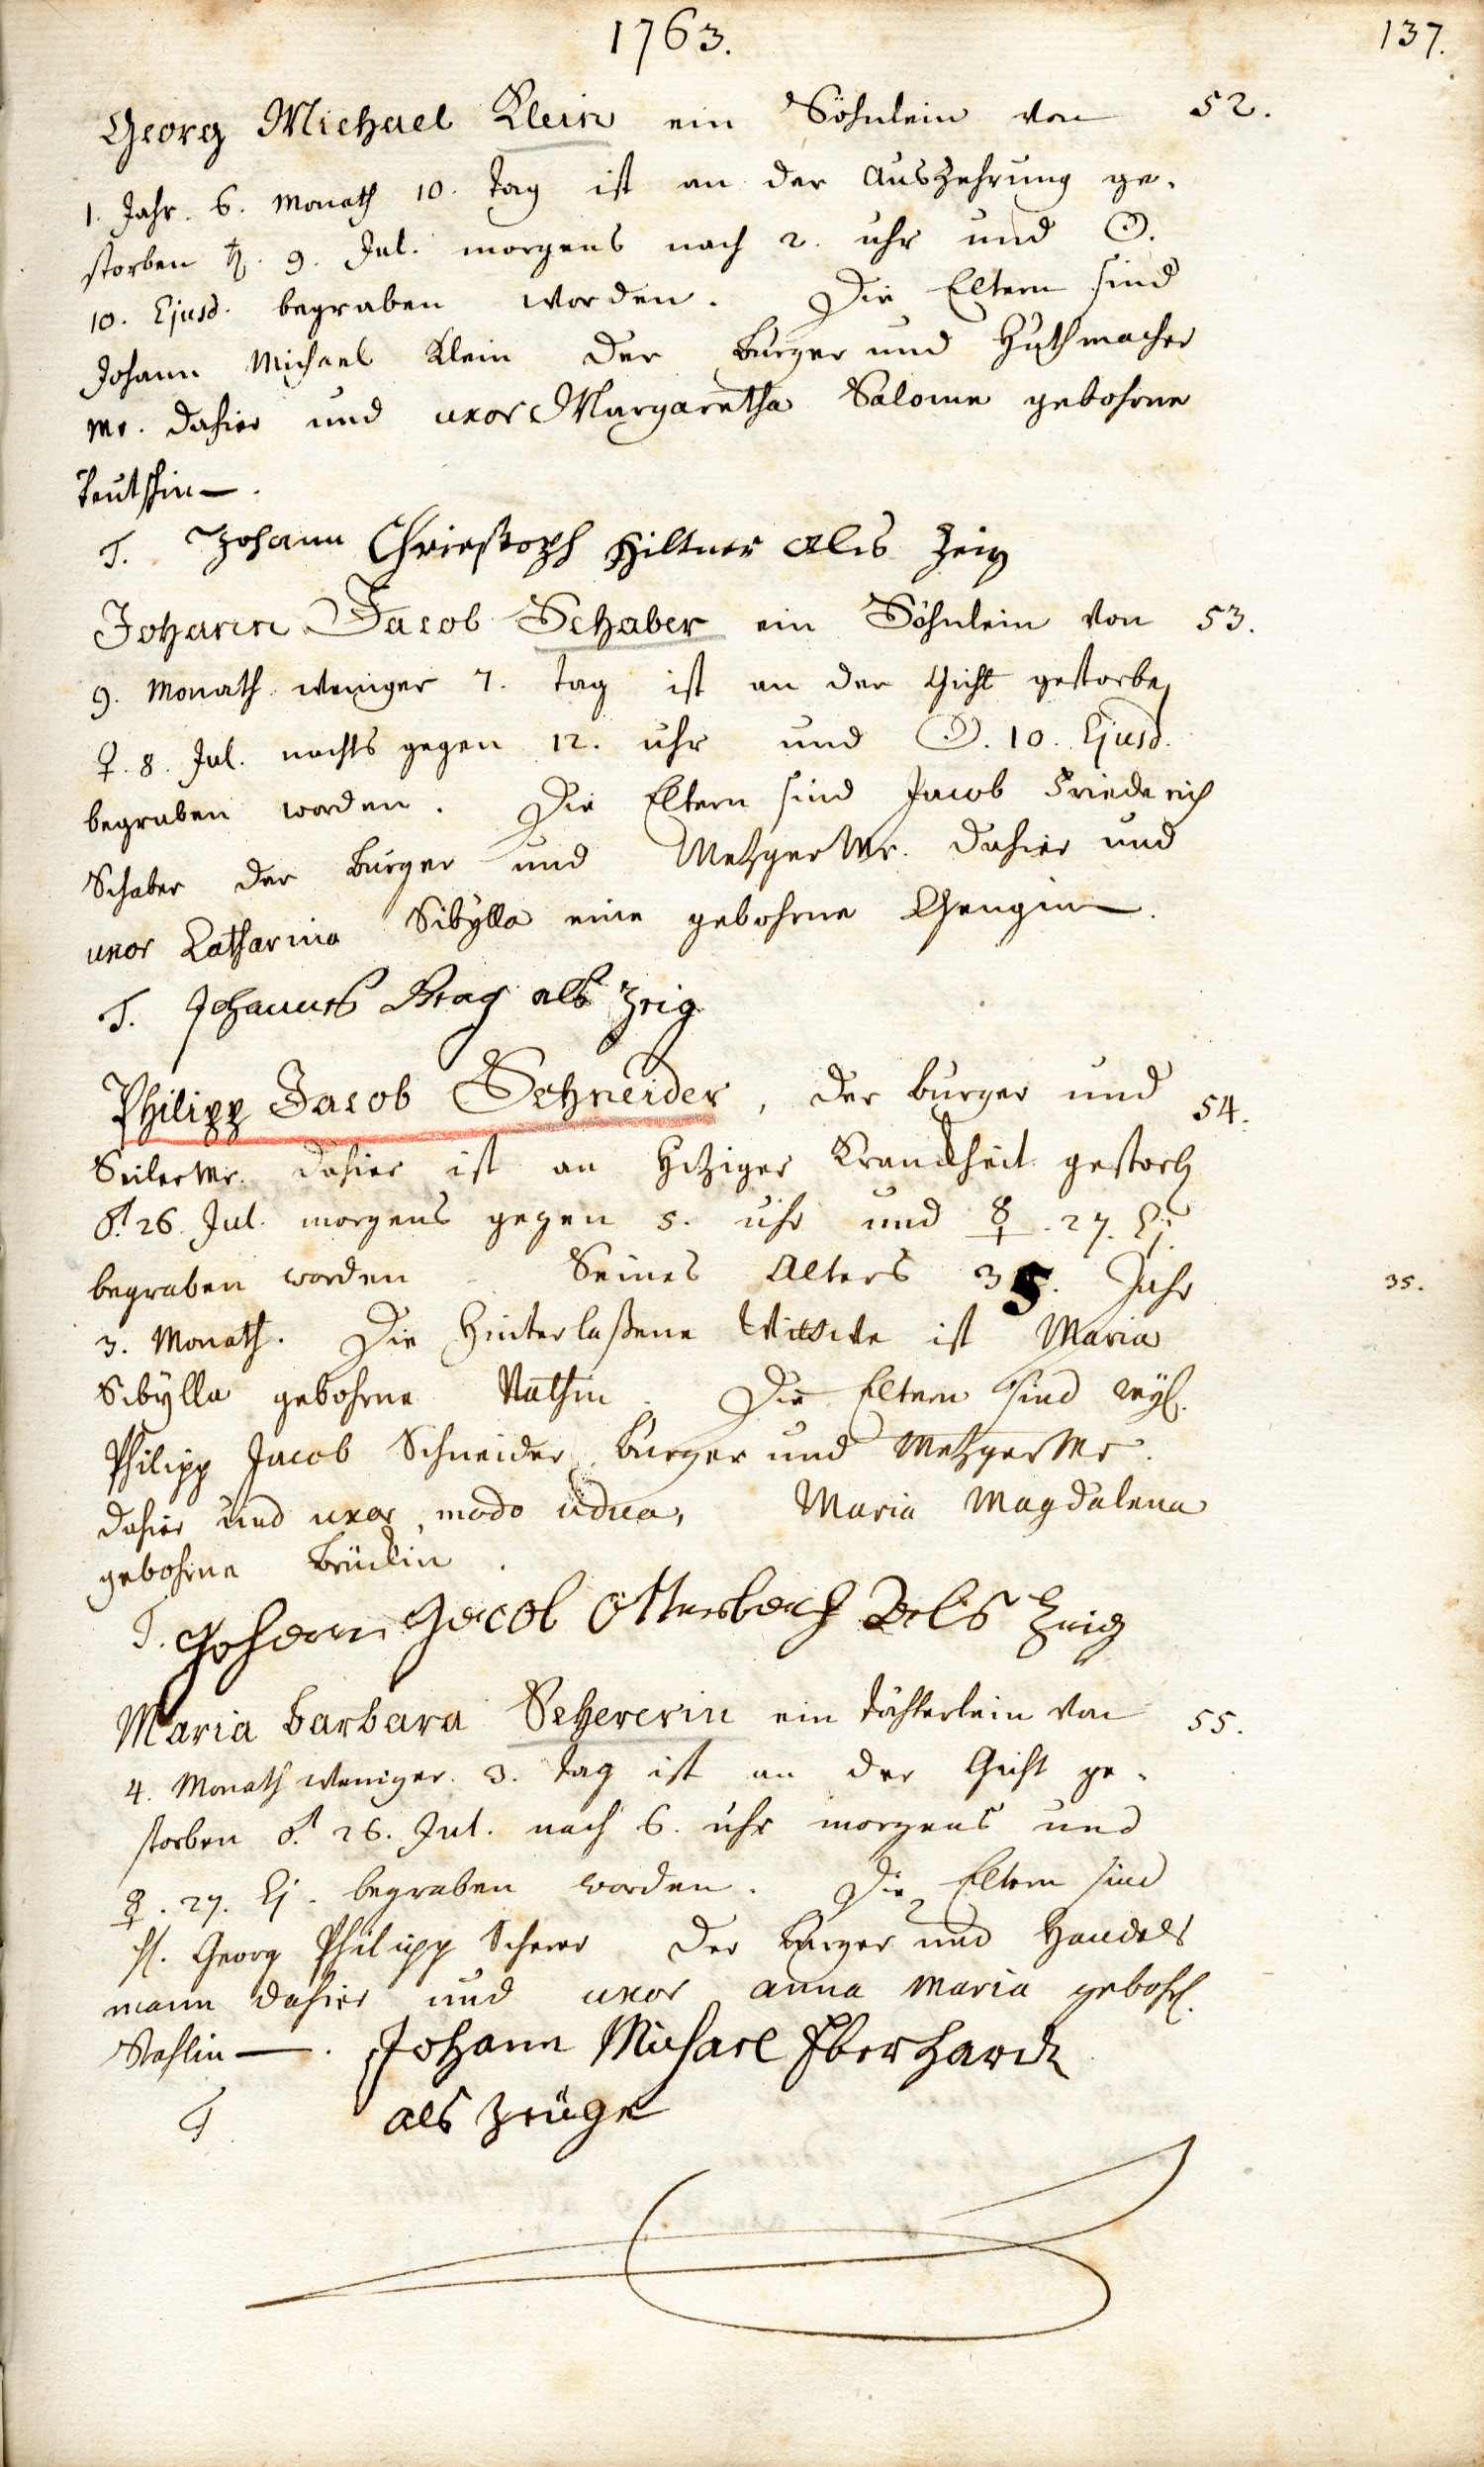 1763.
137.
Georg Michael Klein ein Söhnlein von 52.
1. Jahr. 6. Monath 10. Tag ist an der Auszehrung ge-
storben ♄. 9. Jul. morgens nach 2. uhr und ☉.
10. Ejusd. begraben worden. Die Eltern sind
Johann Michael Klein der Burger und Huthmacher
Mr. dahier und uxor Margaretha Salome gebohrne
Teutschin —.
T. Johann Christoph Hiltner Als Zeig
Johann Jacob Schaber ein Söhnlein von 53.
9. Monath weniger 7. Tag ist an der Gicht gestorben
♀. 8. Jul. nachts gegen 12. uhr und ☉. 10. Ejusd.
begraben worden. Die Eltern sind Jacob Friederich
Schaber der Burger und Metzger Mr. dahier und
uxor Catharina Sibÿlla eine gebohrne Gengin —.
T. Johannes als Zeig
Philipp Jacob Schneider, der Burger und 54.
Seiler Mr. dahier ist an Hitziger Kranckheit gestorb
♂. 26. Jul. morgens gegen 5. uhr und ☿. 27. Ej.
begraben worden. Seines Alters 35. Jahr 35.
3. Monath. Die Hinterlaßene Wittwe ist Maria
Sibÿlla gebohrne Nathin. Die Eltern sind weÿl.
Philipp Jacob Schneider, Burger und Metzger Mr.
dahier und uxor, modo vidua, Maria Magdalena
gebohrne Brücklin.
T. Johann Jacob Ottersbach Als Zeig
Maria Barbara Schererin ein Töchterlein von 55.
4. Monath weniger 3. Tag ist an der Gicht ge-
storben ♂. 26. Jul. nach 6. uhr morgens und
☿. 27. Ej. begraben worden. Die Eltern sind
H. Georg Philipp Scherer der Burger und Handels
mann dahier und uxor Anna Maria gebohr.
Stahlin —. Johann Michael Eberhardt
T als Zeüge